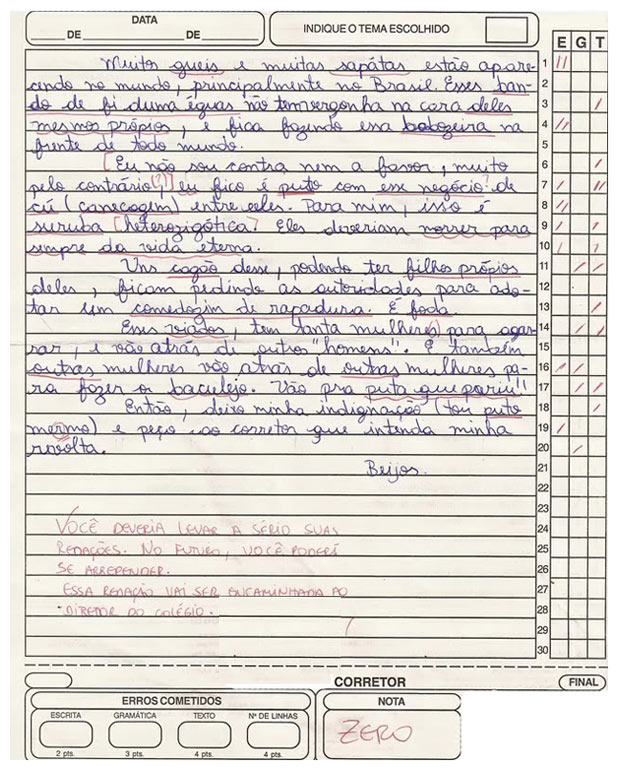 DATA
DE DE
INDIQUE O TEMA ESCOLHIDO
E G T
Muitos gueis e muitas sapátas estão apare- 1
cendo no mundo, principalmente no Brasil. Esses ban- 2
do de fi duma éguas não tem vergonha na cara deles 3
mesmos própios, e fica fazendo essa babozeira na 4
frente de todo mundo. 5
[Eu não sou contra nem a favor, muito 6
pelo contrário(?)] eu fico é puto com esse negócio de 7
cú (canecagem) entre eles. Para mim, isso é 8
suruba [heterozigótica? Eles deveriam morrer para 9
sempre da vida eterna. 10
Uns cagão desse, podendo ter filhos própios 11
deles, ficam pedindo as autoridades para ado- 12
tar um comedozim de rapadura. É foda. 13
Esses viados, tem tanta mulher(e) para agar 14
rar, e vão atrás di outros "homens". E também 15
outras mulheres vão atrás de outras mulheres pa- 16
ra fazer o baculejo. Vão pra puta que pariu!! 17
Então, deixo minha indignação (tou puto 18
mermo) e peço ao corretor que intenda minha 19
revolta. 20
Beijos. 21
22
23
VOCÊ DEVERIA LEVAR A SÉRIO SUAS 24
REDAÇÕES. NO FUTURO, VOCÊ PODERÁ 25
SE ARREPENDER. 26
ESSA REDAÇÃO VAI SER ENCAMINHADA AO 27
DIRETOR DO COLÉGIO. 28
29
30
CORRETOR FINAL
ERROS COMETIDOS NOTA
ESCRITA GRAMÁTICA TEXTO Nº DE LINHAS
ZERO
2 pts. 3 pts. 4 pts. 4 pts.